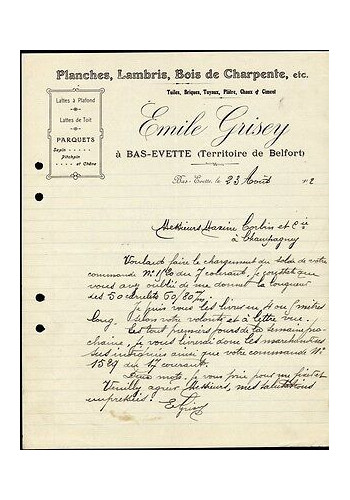 Planches, Lambris, Bois de Charpente, etc.
Tuiles, Briques, Tuyaux, Plâtre, Chaux & Ciment
Lattes à Plafond
Lattes de Toit
PARQUETS
Sapin
Pitchpin
et Chêne
Emile Grisey
à BAS-EVETTE (Territoire de Belfort)
Bas-Evette, le 23 Août 2
Messieurs Maxime Corbin et Cie
à Champagney
Voulant faire le chargement du solde de votre
commande N° du 7 courant, je
vous avez oublié de me donner la longueur
des 50 60/80
Je puis vous les livrer en 4 ou mètres
long, selon votre volonté et à lettre vue.
Les tout premiers jours de la semaine pro-
chaine, je vous livrerai donc les marchandises
ainsi que votre commande N°
1529 du 17 courant.
Deux mots, je vous prie, pour me fixer et
Veuillez agréer Messieurs, mes salutations
empressées!
EGrisey